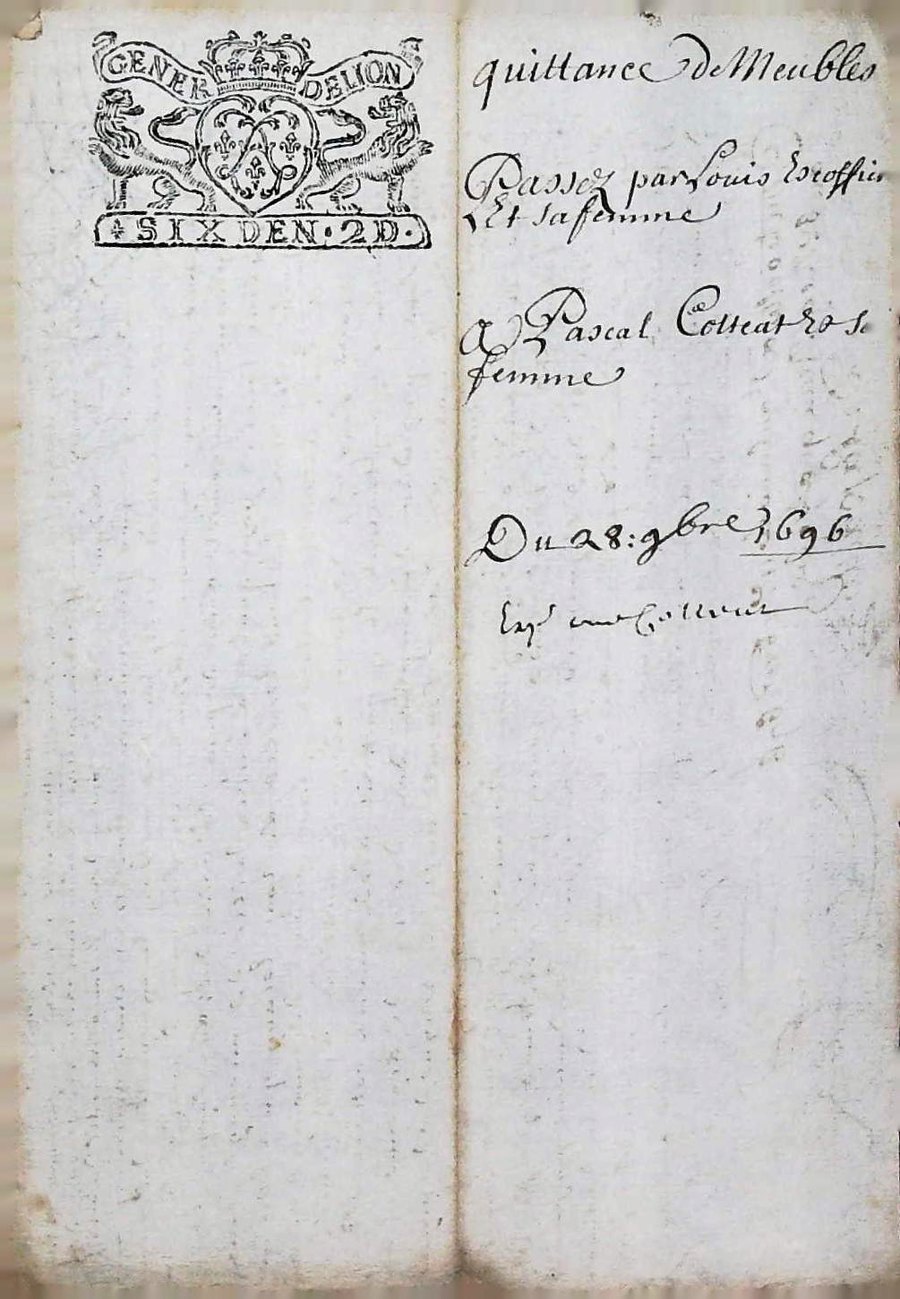 GENER DELION
* SIX DEN · 2D ·
quittance de Meubles
Passez par Louis Escoffier
Et sa femme
A Pascal Cotteat Et sa
femme
Du 28: 9bre 1696